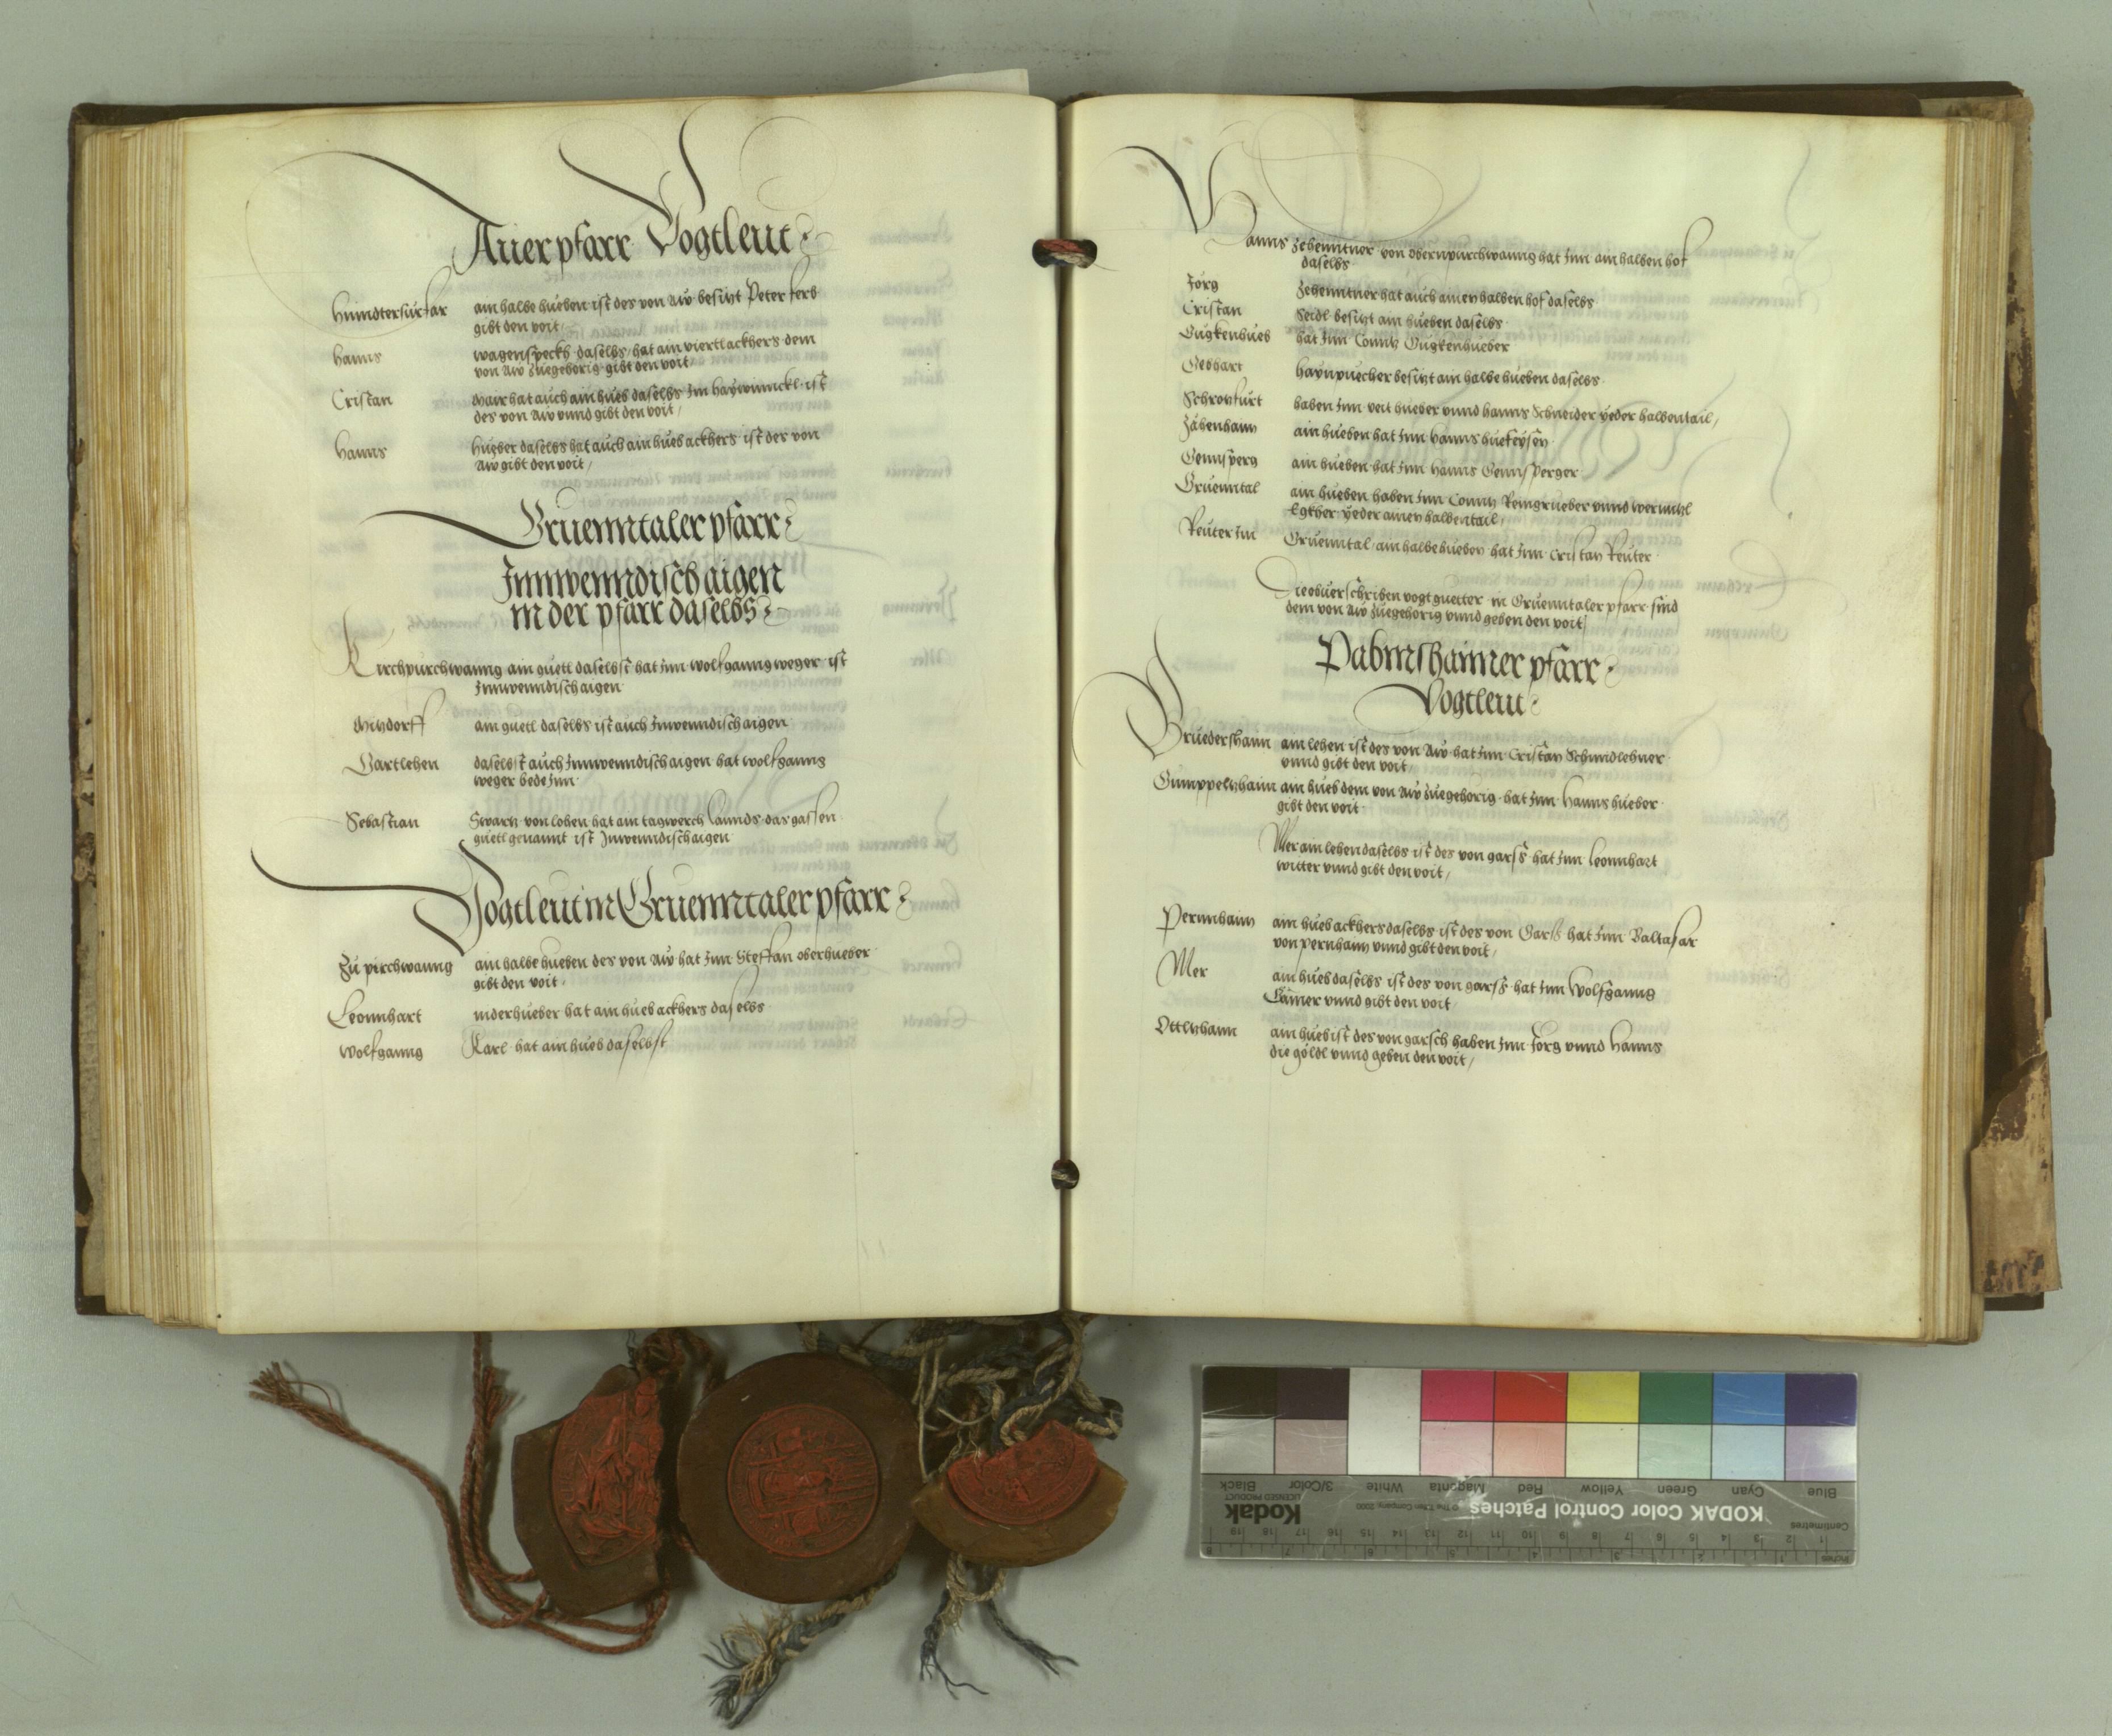 Auer pfarr Vogtleut
Hinndtersurfar ain halbe hueben ist des von Aw besitzt Peter ferb
gibt den voit
Hanns wagenspeckh daselbs hat ain viertl ackhers dem
von Aw zuegehorig gibt den voit
Cristan Mair hat auch ain hueb daselbs Im haywinnckl ist
des von Aw vnnd gibt den voit
Hanns Hueber daselbs hat auch ain hueb ackhers ist des von
Aw gibt den voit
Gruenntaler pfarr
Innwenndisch aigen
in der pfarr daselbs
Kirchpurchwanng ain guetl daselbst hat Inn wolfganng weger ist
Innwenndisch aigen
Mitzdorff ain guetl daselbs ist auch Innwenndisch aigen
Gartlehen daselbst auch Innwenndisch aigen hat wolfganng
weger bede Inn
Sebastian Swartz von lohen hat ain tagwerch lannds das gassen
guetl genannt ist Innwenndisch aigen
Vogtleut in Gruenntaler pfarr
Zu pirchwanng ain halbe hueben des von Aw hat Inn Steffan oberhueber
gibt den voit
Leonnhart niderhueber hat ain hueb ackhers daselbs
wolfganng Karl hat ain hueb daselbst
Hanns Zehenntner von obernpurchwanng hat Inn ain halben hof
daselbs
Jorg Zehenntner hat auch ainen halben hof daselbs
Cristan Seidl besitzt ain hueben daselbs
Gugkenhueb hat Inn Conntz Gugkenhueber
Gebhart haynpuecher besitzt ain halbe hueben daselbs
Schronfurt haben Inn veit hueber vnnd hanns Schneider yeder halbentail
Zäbenhaim ain hueben hat Inn hanns huefeysen
Gennsperg ain hueben hat Inn Hanns Gennsperger
Gruenntal ain hueben haben Inn Conntz Reingrueber vnnd
yeder ainen halbentail
Reuter Im Gruenntal ain halbe hueben hat Inn Cristan Reuter
Die obuerschriben vogt guetter in Gruenntaler pfarr sind
dem von Aw zuegehorig vnnd geben den voit
Pabmshaimer pfarr
Vogtleut
Bruedershaim ain lehen ist des von Aw hat Inn Cristan Schmidlehner
vnnd gibt den voit
Gumppeltzhaim ain hueb dem von Aw zuegehorig hat Inn Hanns hueber
gibt den voit
Mer ain lehen daselbs ist des von garss hat Inn Leonnhart
witter vnnd gibt den voit
Pernnhaim ain hueb ackhers daselbs ist des von Garss hat Inn Baltasar
von pernhaim vnnd gibt den voit
Mer ain hueb daselbs ist des von garss hat Inn Wolfganng
vnnd gibt den voit
Ottltzhaim ain hueb ist des von garsch haben Inn Jorg vnnd Hanns
die göldl vnnd geben den voit
KODAK Color Control Patches © The Tiffen Company, 2000
Kodak
LICENSED PRODUCT
Blue Cyan Green Yellow Red Magenta White 3/Color Black
Centimetres 1 2 3 4 5 6 7 8 9 10 11 12 13 14 15 16 17 18 19
Inches